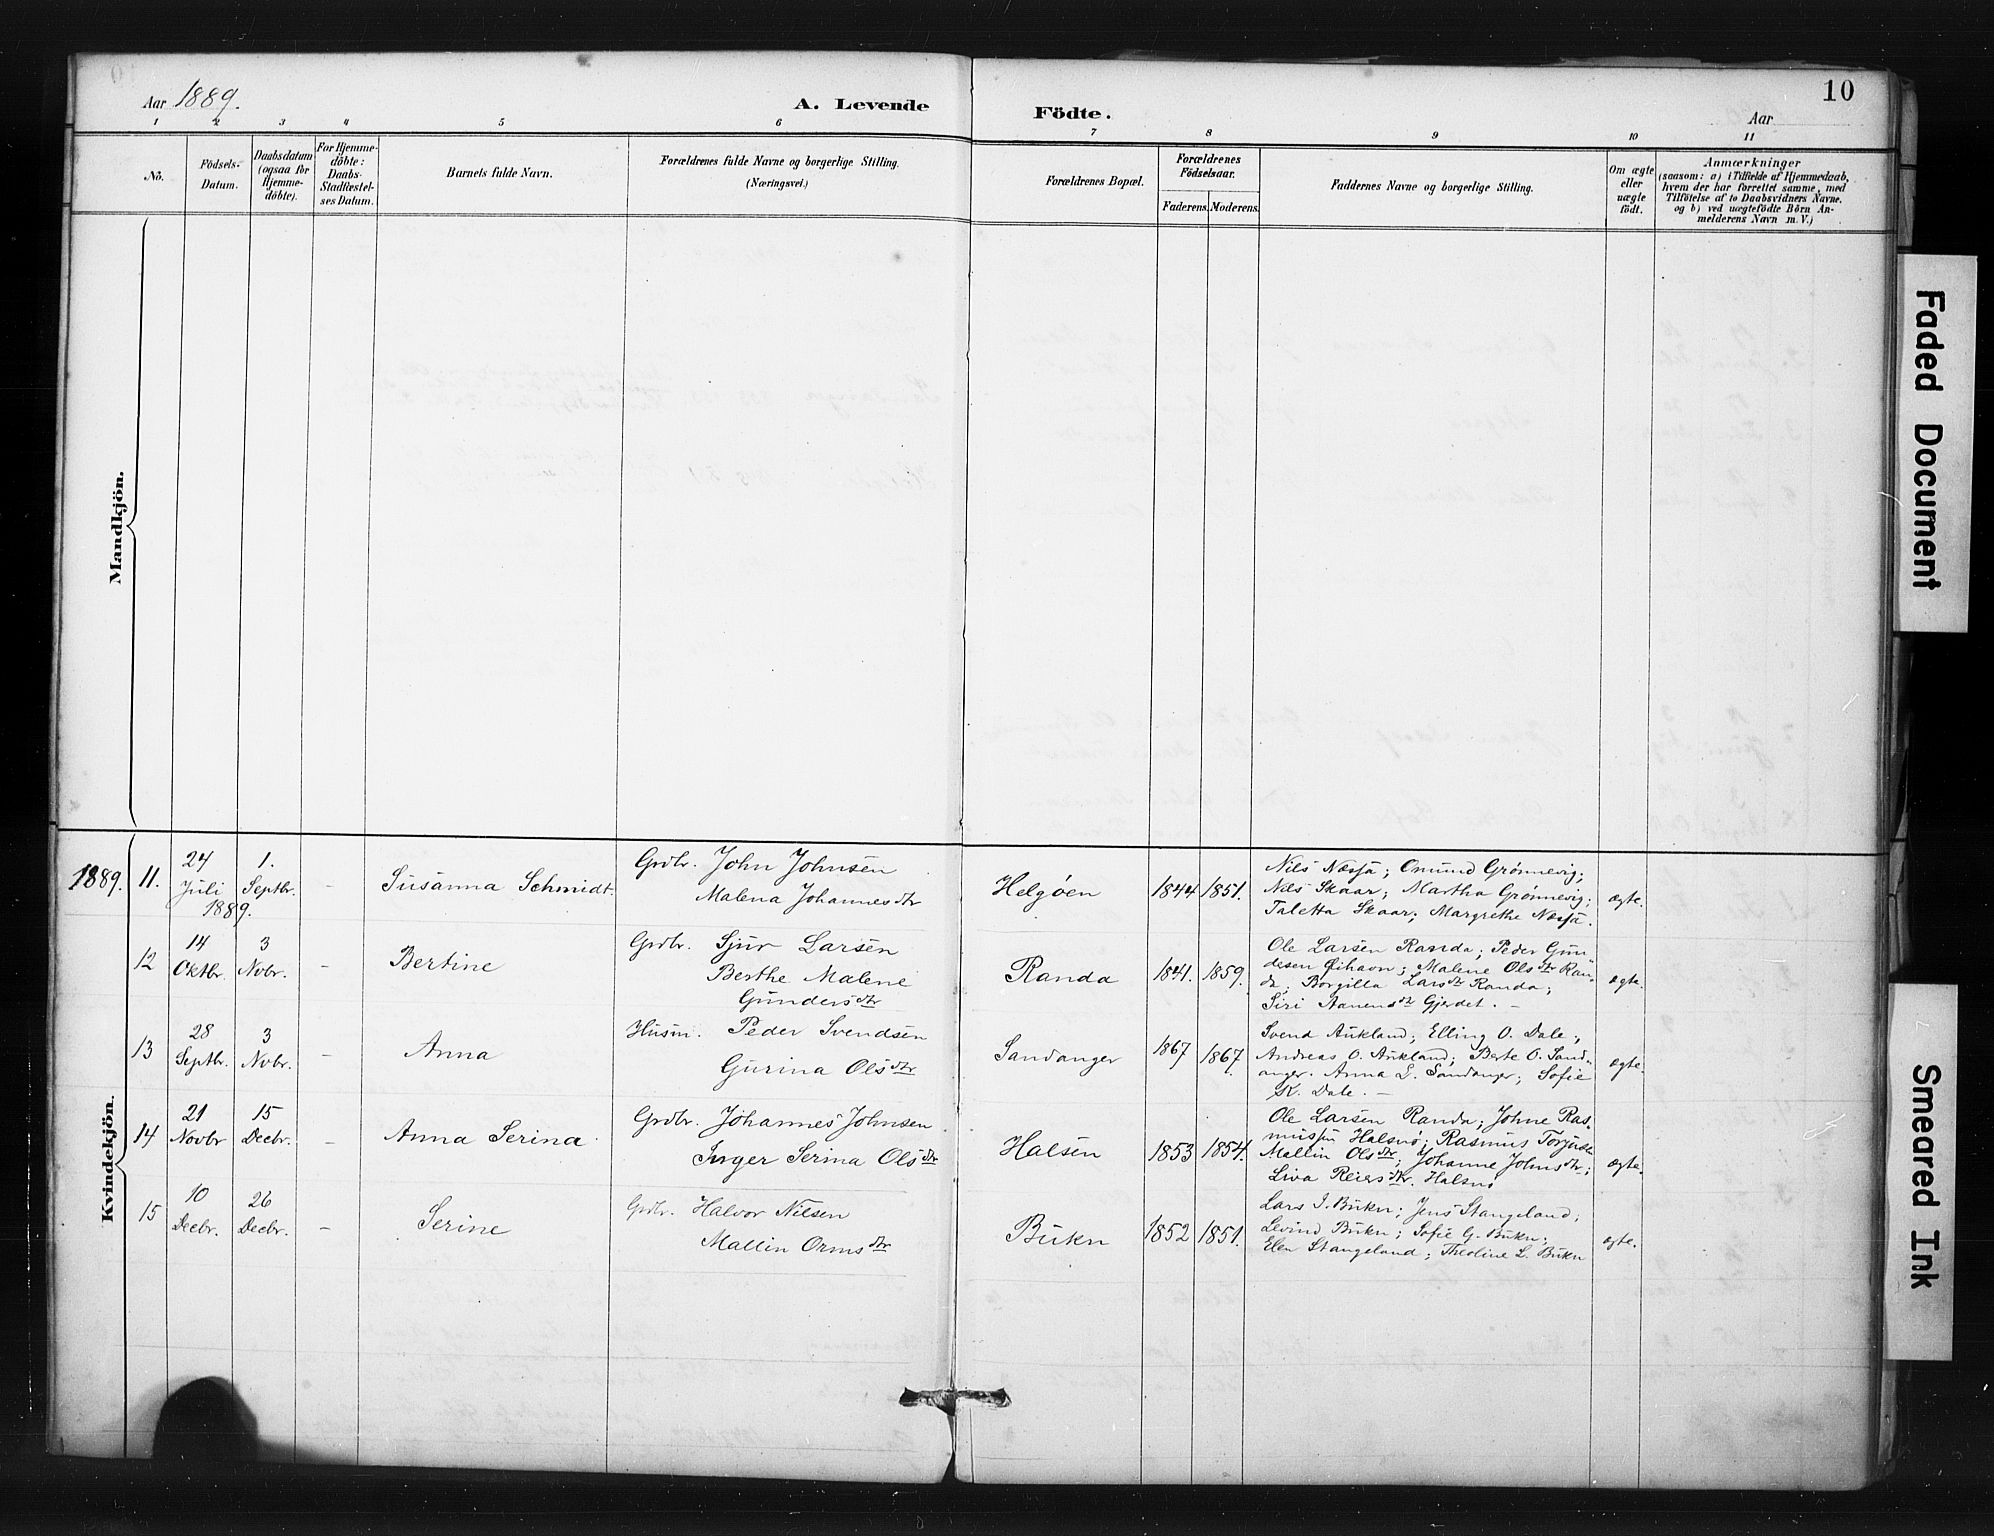 Aar 1889.
A. Levende
Födte.
Aar
10
1
2
3
4
5
6
7
8
9
10
11
No.
Födsels-
Datum.
Daabsdatum
(ogsaa for
Hjemme-
döbte).
For Hjemme-
döbte:
Daabs-
Stadfæstel-
ses Datum.
Barnets fulde Navn.
Forældrenes fulde Navne og borgerlige Stilling.
(Næringsvei.)
Forældrenes Bopæl.
Forældrenes
Födselsaar.
Faderens.
Moderens.
Faddernes Navne og borgerlige Stilling.
Om ægte
eller
uægte
födt.
Anmærkninger
(saasom: a) i Tilfælde af Hjemmedaab,
hvem der har forrettet samme, med
Tilföielse af to Daabsvidners Navne.
og b) ved uægtefödte Börn An-
melderens Navn m. V.)
Mandkjön.
Kvindekjön.
1889. 11.
24
Juli
1889.
1.
Septbr.
-
Susanna Schmidt.
Grdbr. John Johnsen
Malena Johannesdtr
Helgøen
1844
1851.
Nils Næsjø; Omund Grønnevig;
Nils Skaar; Martha Grønnevig;
Taletta Skaar; Margrethe Næsjø.
ægte.
12
14
Oktbr.
3
Novbr.
-
Bertine
Grdbr. Sjur Larsen
Berthe Malene
Gundersdtr
Randa
1841.
1859.
Ole Larsen Randa; Peder Gun-
dersen ; Malene Olsdtr Ran-
da; Borgilla Larsdtr Randa;
Siri Aanensdtr Gjerdet. -
ægte.
13
28
Septbr.
3
Novbr.
-
Anna
Husm. Peder Svendsen
Gurina Olsdtr
Sandanger
1867
1867
Svend Aukland; Elling O. Dale;
Andreas O. Aukland; Berte O. Sand-
anger. Anna L. Sandanger; Sofie
K. Dale. -
ægte.
14
21
Novbr
15
Decbr.
-
Anna Serina
Grdbr. Johannes Johnsen
Inger Serina Olsdtr
Halsen
1853
1854.
Ole Larsen Randa; Johne Ras-
mussen Halsnø; Rasmus Torjusen
Mallin Olsdtr; Johanne Johnsdtr;
Liva Reiersdtr. Halsnø
ægte.
15
10
Decbr.
26
Decbr.
-
Serine
Grdbr. Halvor Nilsen
Mallin Ormsdtr
Bukn
1852
1851.
Lars I. Bukn; Jens Stangeland;
Bukn; Sofie G. Bukn;
Elen Stangeland; Theoline L. Bukn
ægte.
Faded Document
Smeared Ink